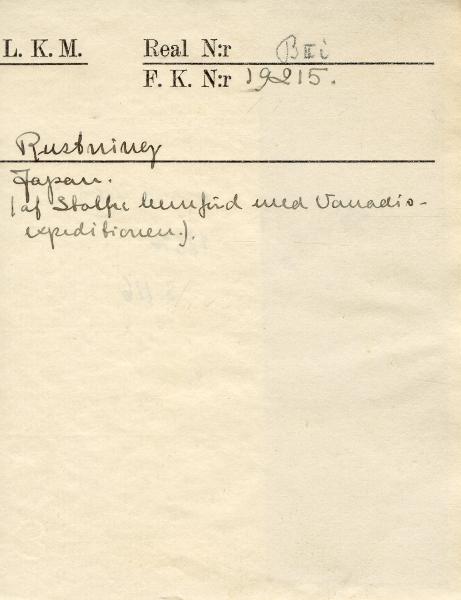 L. K. M. Real N:r B III i
F. K. N:r 19215.
Rustning
Japan.
(af Stolpe hemförd med Vanadis-
expeditionen.).